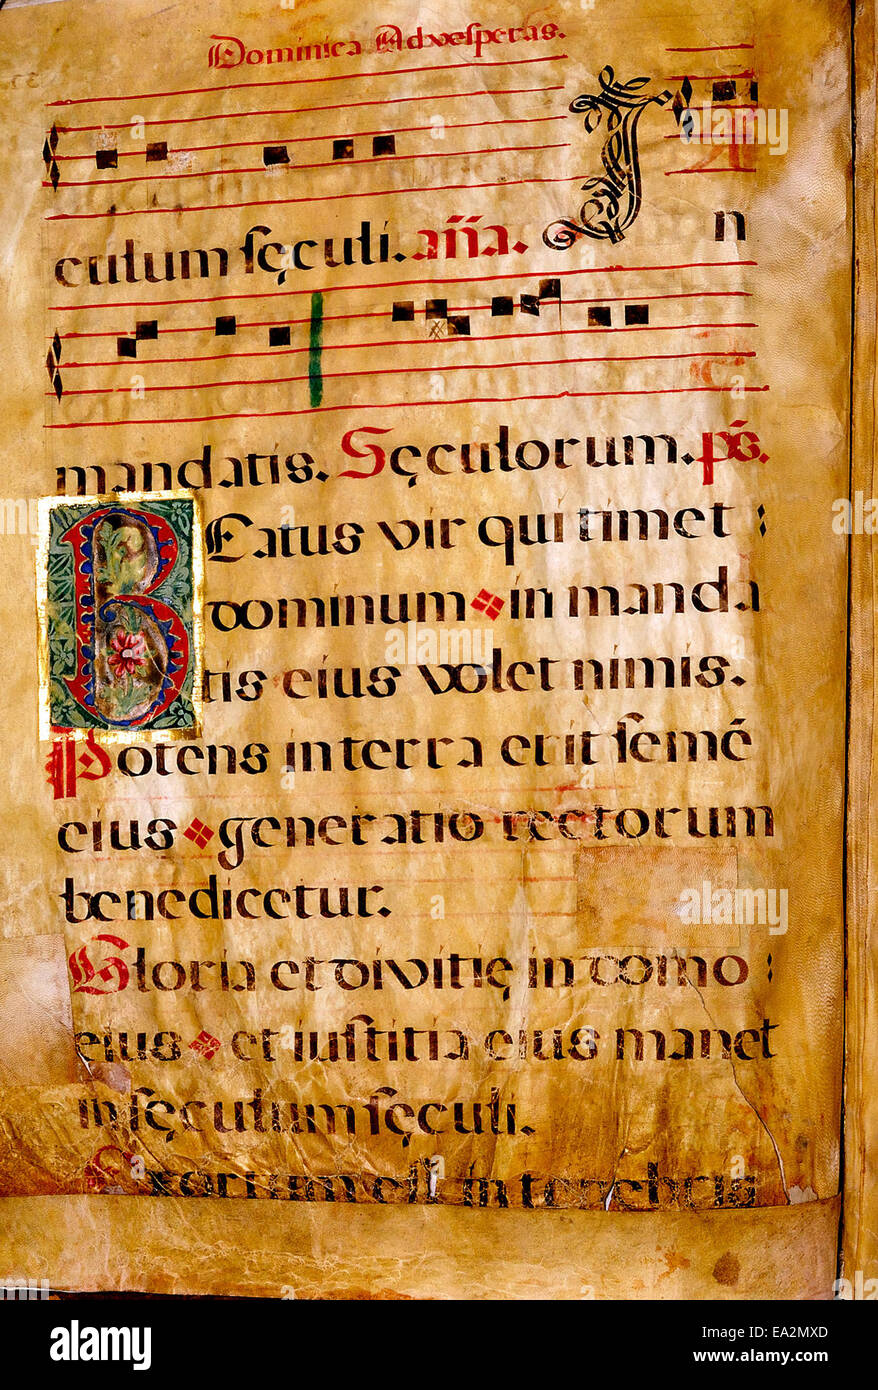 Dominica Ad vesperas.
In
culum sęculi. aña.
mandatis. Sęculorum. ps.
BEatus vir qui timet :
dominum in manda
tis eius volet nimis.
Potens in terra erit semē
eius generatio rectorum
benedicetur.
Gloria et divitię in domo :
eius et iustitia eius manet
in sęculum sęculi.
Exortum est in tenebris
alamy
EA2MXD
www.alamy.com